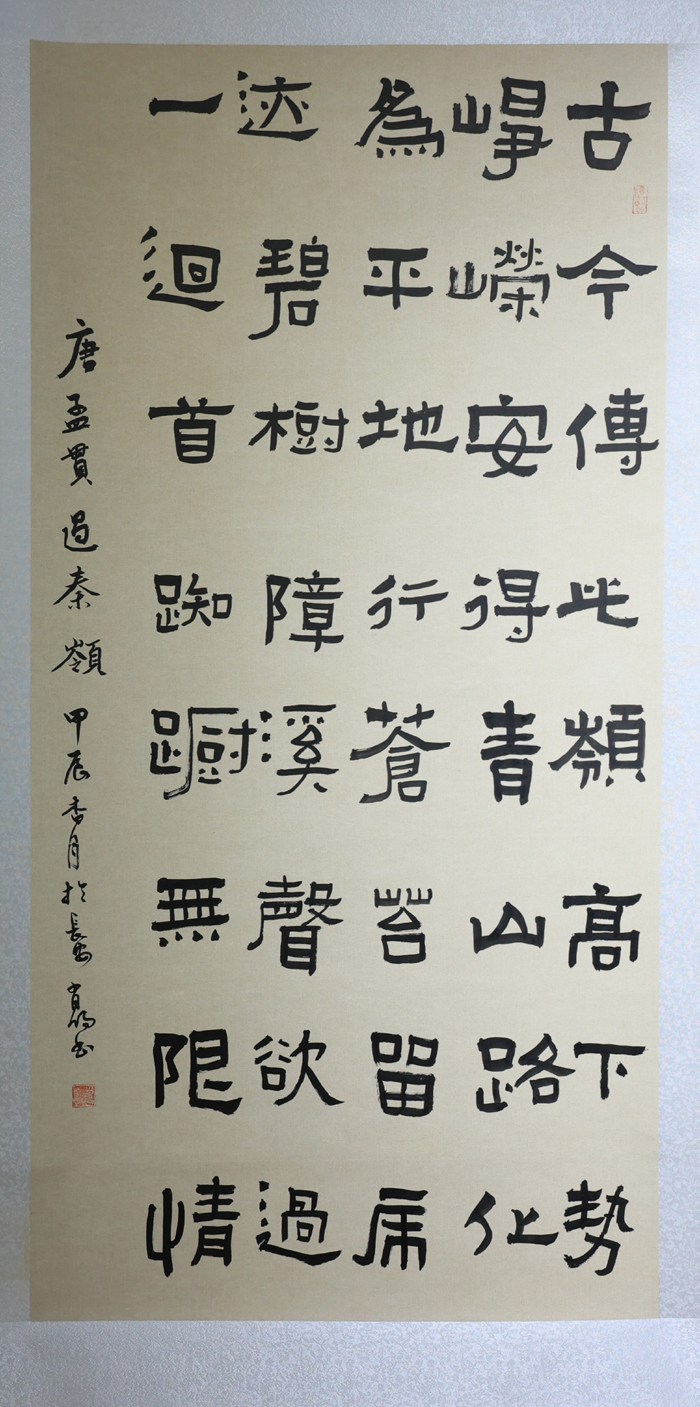 古今傳此嶺高下勢
崢嶸安得青山路化
為平地行蒼苔留虎
迹碧樹障溪聲欲過
一迴首踟躕無限情
唐孟貫過秦嶺甲辰香月於長安書